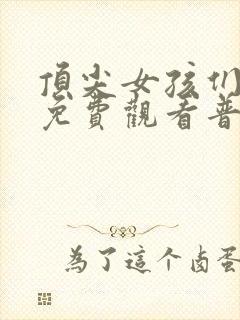 頂尖女孩们
免費觀看普
為了這个卤蛋